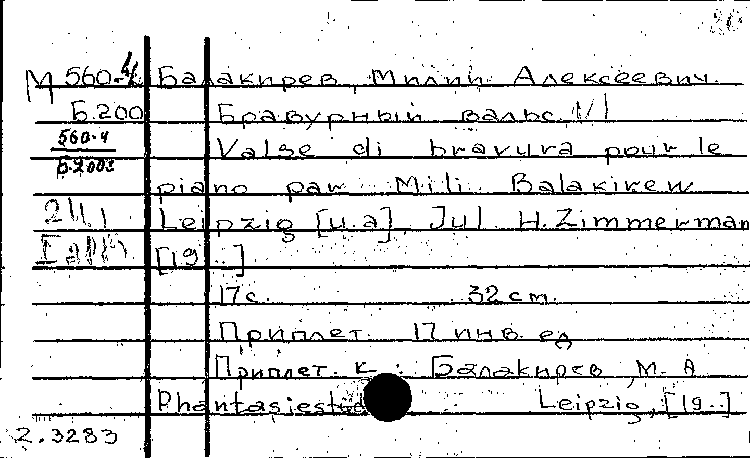 М 560-4 Балакирев, Милий Алексеевич.
Б.200 Бравурный вальс, N1
560-4 Valse di bravura pour le
Б.2003
piano par Mili Balakirew
2Ц1 Leipzig [u.a], Jul. H. Zimmerman
[19..]
17 с. 32 cm.
Приплет. 17 инв. ед
Приплет. к: Балакирев, М. А
Leipzig, [19..]
2.3283